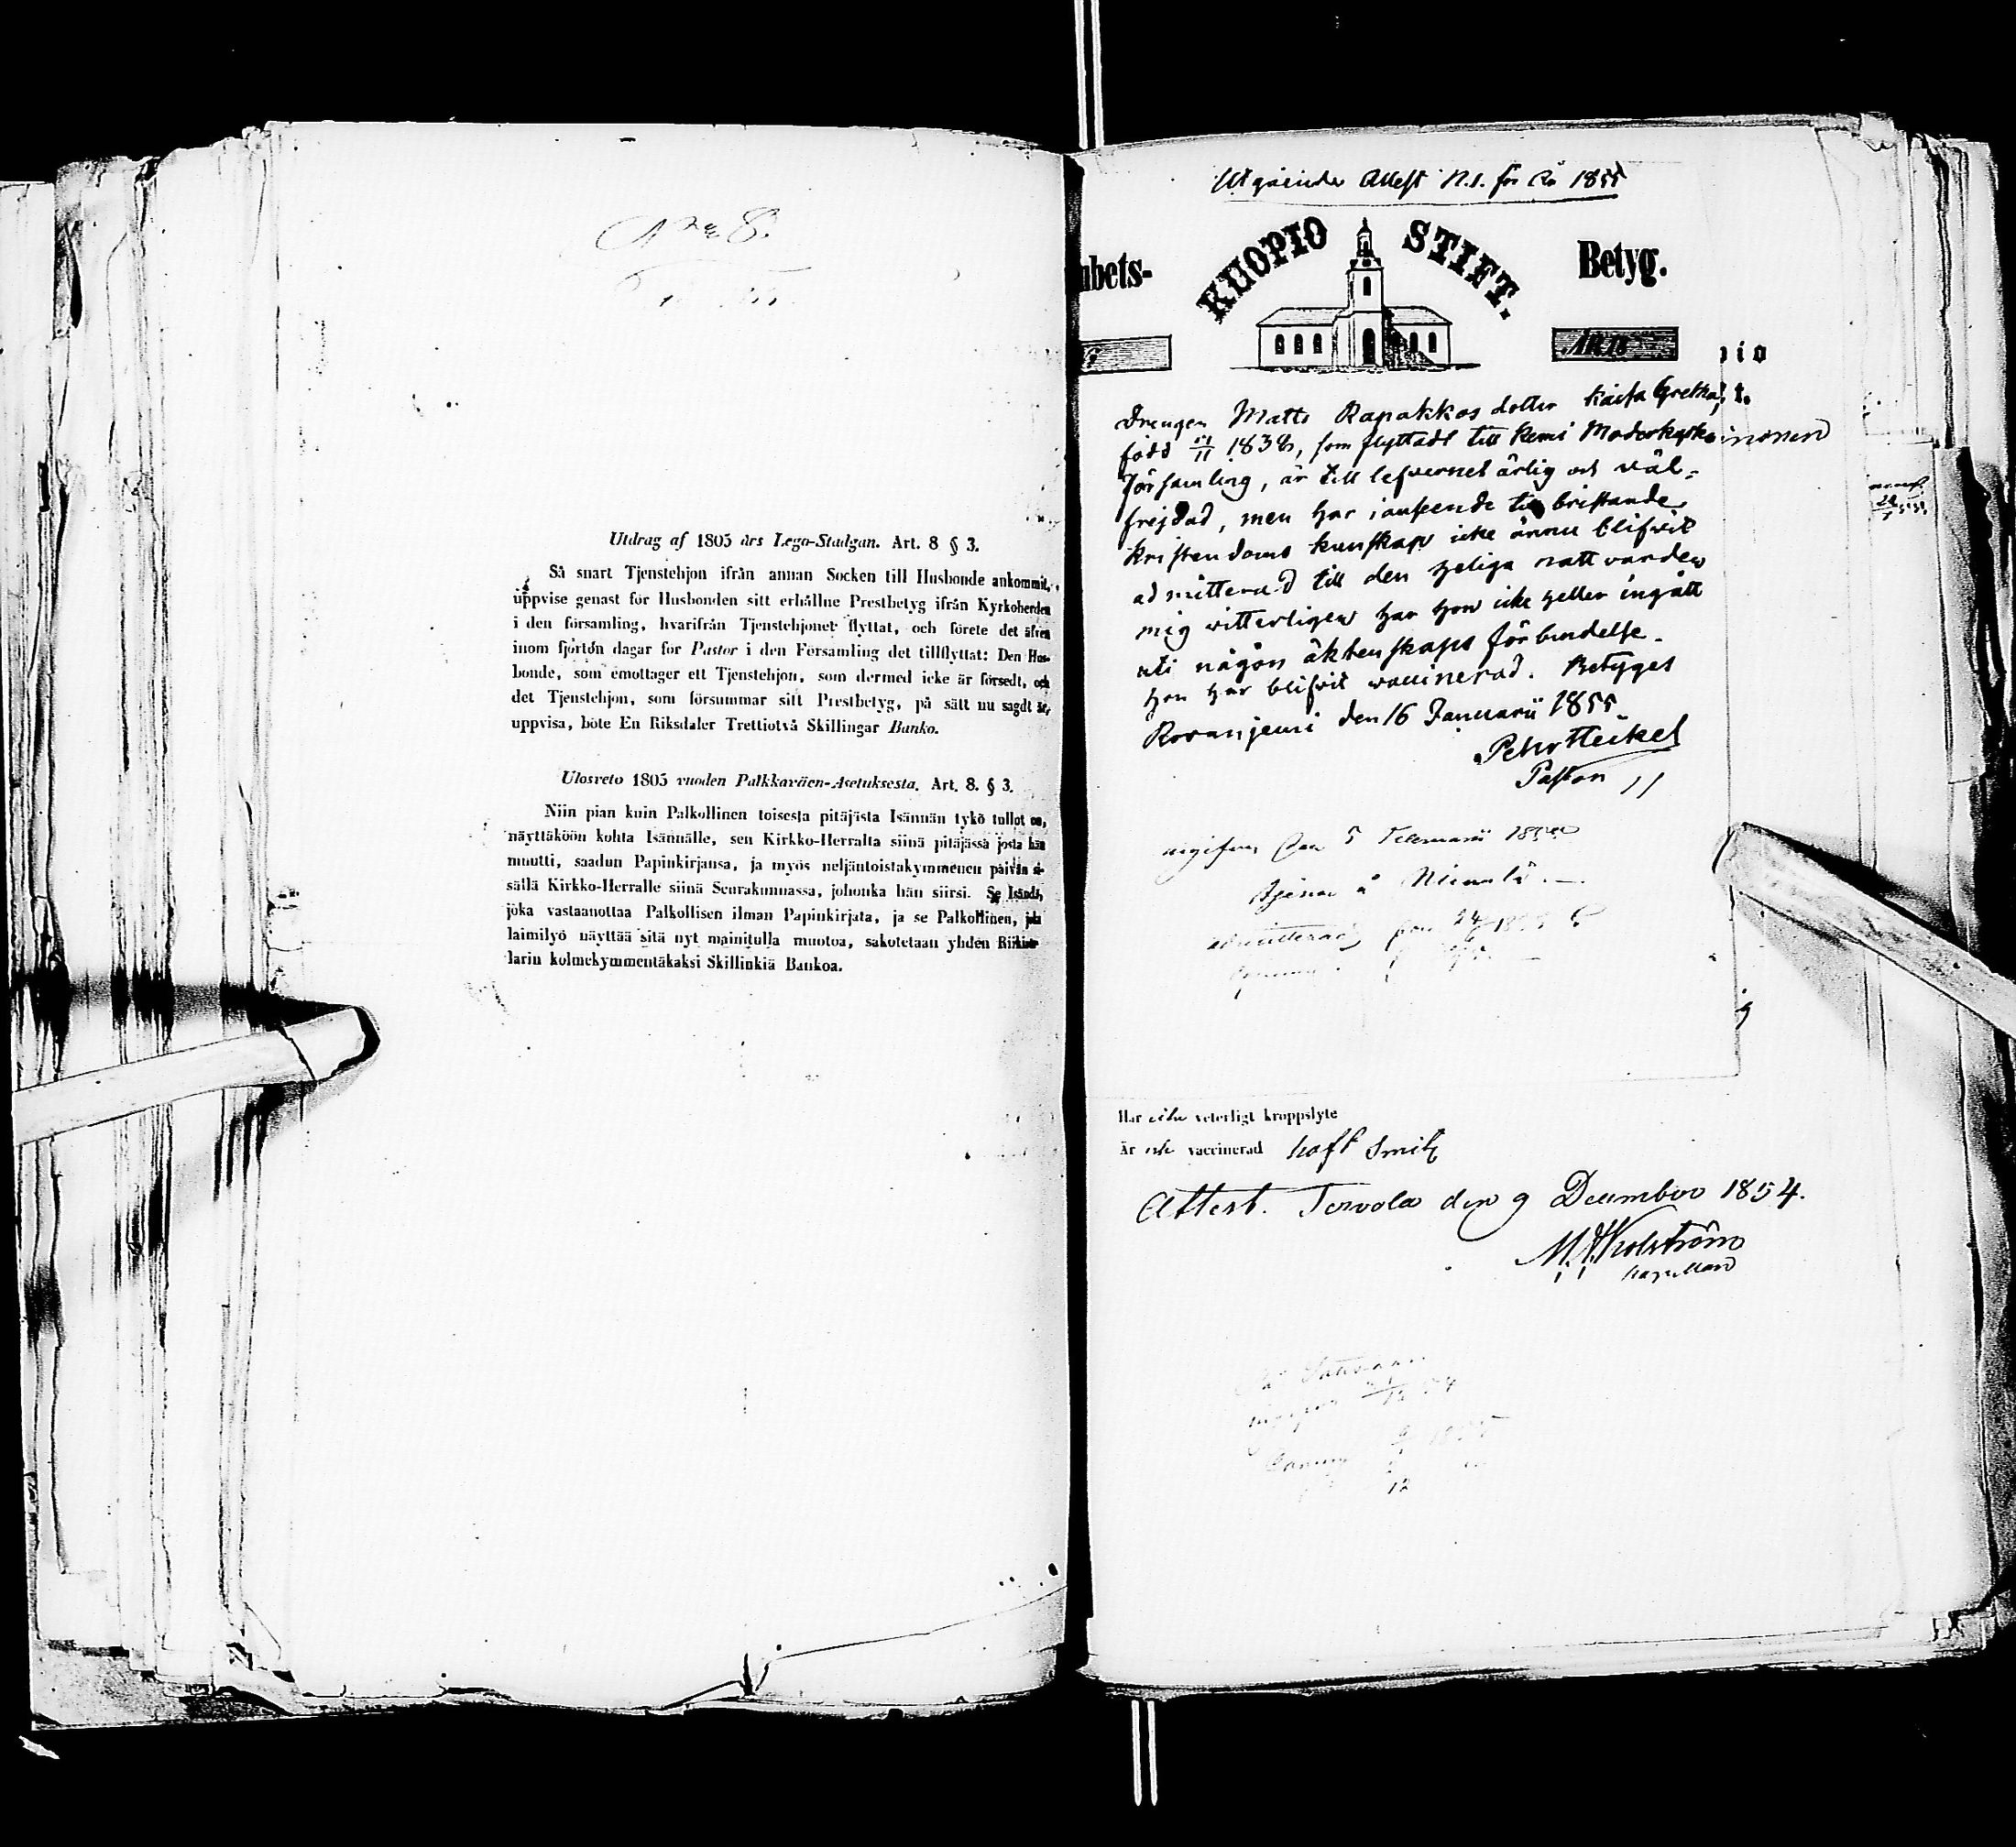 Nro 8.
Utdrag af 1805 års Lego-Stadgan. Art. 8 § 3.
Så snart Tjenstehjon ifrån annan Socken till Husbonde ankommit,
uppvise genast för Husbonden sitt erhållne Prestbetyg ifrån Kyrkoherden
i den församling, hvarifrån Tjenstehjonet flyttat, och förete det äfven
inom fjorton dagar för Pastor i den Församling det tillflyttat: Den Hus-
bonde, som emottager ett Tjenstehjon, som dermed icke är försedt, och
det Tjenstehjon, som försummar sitt Prestbetyg, på sätt nu sagdt är,
uppvisa, böte En Riksdaler Trettiotvå Skillingar Banko.
Ulosveto 1805 vuoden Palkkaväen-Asetuksesta. Art. 8. § 3.
Niin pian kuin Palkollinen toisesta pitäjästa Isännän tykö tullot on,
näyttäköön kohta Isännälle, sen Kirkko-Herralta siinä pitäjässä josta hän
muutti, saadun Papinkirjansa, ja myös neljäntoistakymmenen päivän si-
sällä Kirkko-Herralle siinä Seurakunnassa, johonka hän siirsi. Se Isändä,
joka vastaanottaa Palkollisen ilman Papinkirjata, ja se Palkollinen, joka
laimilyö näyttää sitä nyt mainitulla muotoa, sakotetaan yhden Riikin-
larin kolmekymmentäkaksi Skillinkiä Bankoa.
Utgående Attest N.1. för år 1855
KUOPIO STIFT.
bets- Betyg.
ÅR 18
pio
t.
Drengen Matts Rapakkos dotter Kaisa Gretha,
född 11 1838, som flyttadt till Kemi Moderkyrko
församling, är till lefvernet ärlig och väl-
frejdad, men har i anseende till bristande
kristendoms kunskap icke ännu blifvit
admitterad till den heliga nattvarden
mig vitterligen har hon icke heller ingått
uti någon äktenskaps förbindelse.
Hon har blifvit vaccinerad. Betygas
Rovaniemi den 16 Januarii 1855
Petr Heikel
Pastor
den 5 1855
Tjena å
admitterad
Har icke veterligt kroppslyte
Är icke vaccinerad haft Smitt
Attest. Tervola den 9 December 1854.
Kapellan
12